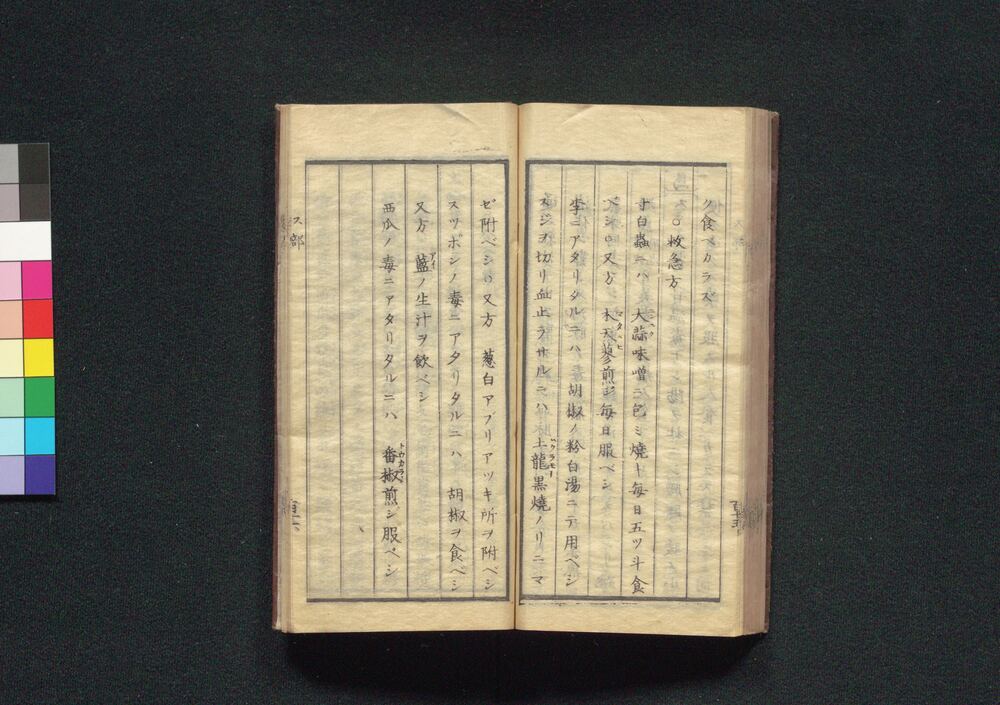 ク食ベカラズ
ス〇救急方
寸白蟲ニハ 大蒜味噌ニ包ミ燒ト毎日五ツ斗食
ベシ〇又方 木天蓼煎ジ毎日服ベシ
李ニアタリタルニハ 胡椒ノ粉白湯ニテ用ベシ
スジヲ切リ血止ラサルニハ 土龍黒燒ノリニマ
ゼ附ベシ〇又方 葱白アブリアツキ所ヲ附ベシ
スツポンノ毒ニアタリタルニハ 胡椒ヲ食ベシ
又方 藍ノ生汁ヲ飲ベシ
西瓜ノ毒ニアタリタルニハ 番椒煎ジ服ベシ
ス部